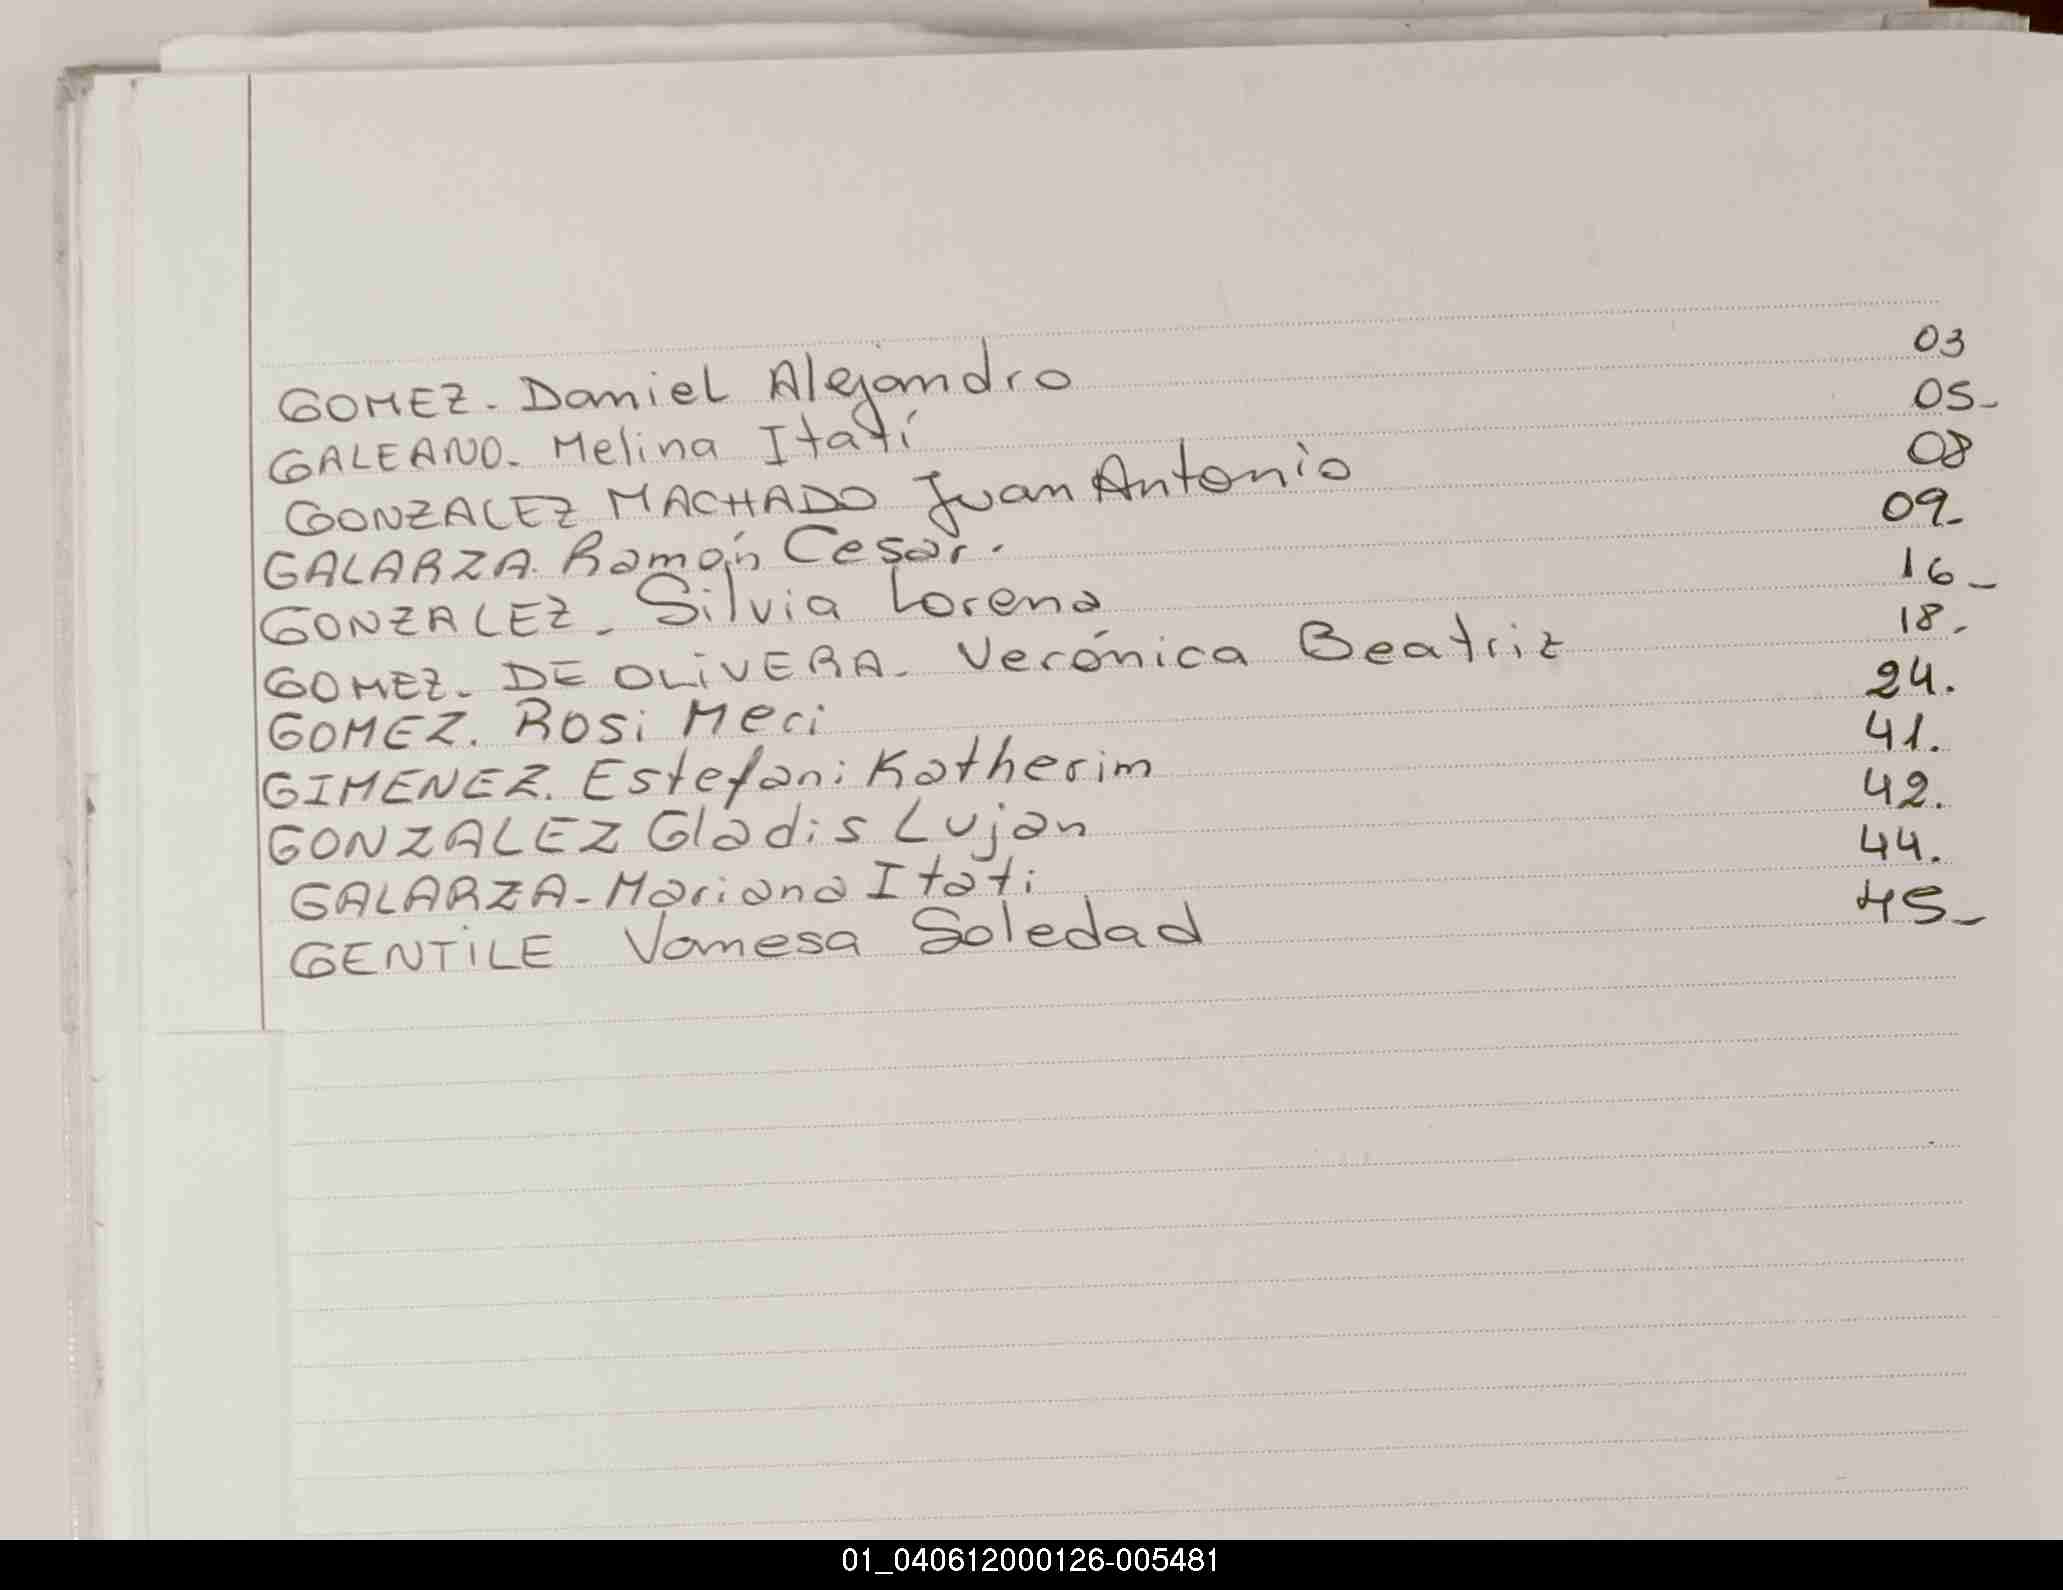 GOMEZ. Daniel Alejandro 03
GALEANO. Melina Itatí 05-
GONZALEZ MACHADO Juan Antonio 08
GALARZA. Ramón Cesar. 09-
GONZALEZ - Silvia Lorena 16-
GOMEZ. DE OLIVERA. Verónica Beatriz 18.
GOMEZ. Rosi Meci 24.
GIMENEZ. Estefani Katherim 41.
GONZALEZ Gladis Lujan 42.
GALARZA - Mariana Itati 44.
GENTILE Vanesa Soledad 45-
01_040612000126-005481